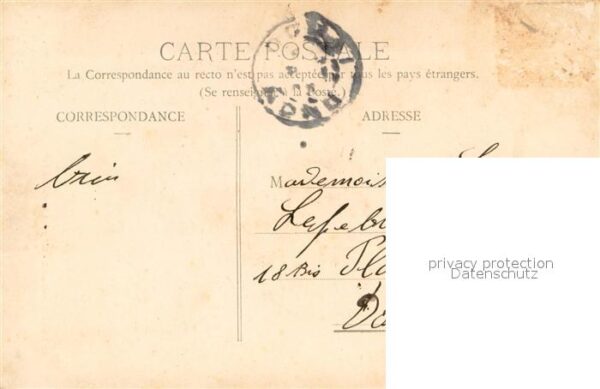 CARTE POSTALE
La Correspondance au recto n'est pas acceptée par tous les pays étrangers.
(Se renseigner à la Poste.)
CORRESPONDANCE
ADRESSE
Mademois
Lefebu
18 Bis Pla
privacy protection
Datenschutz